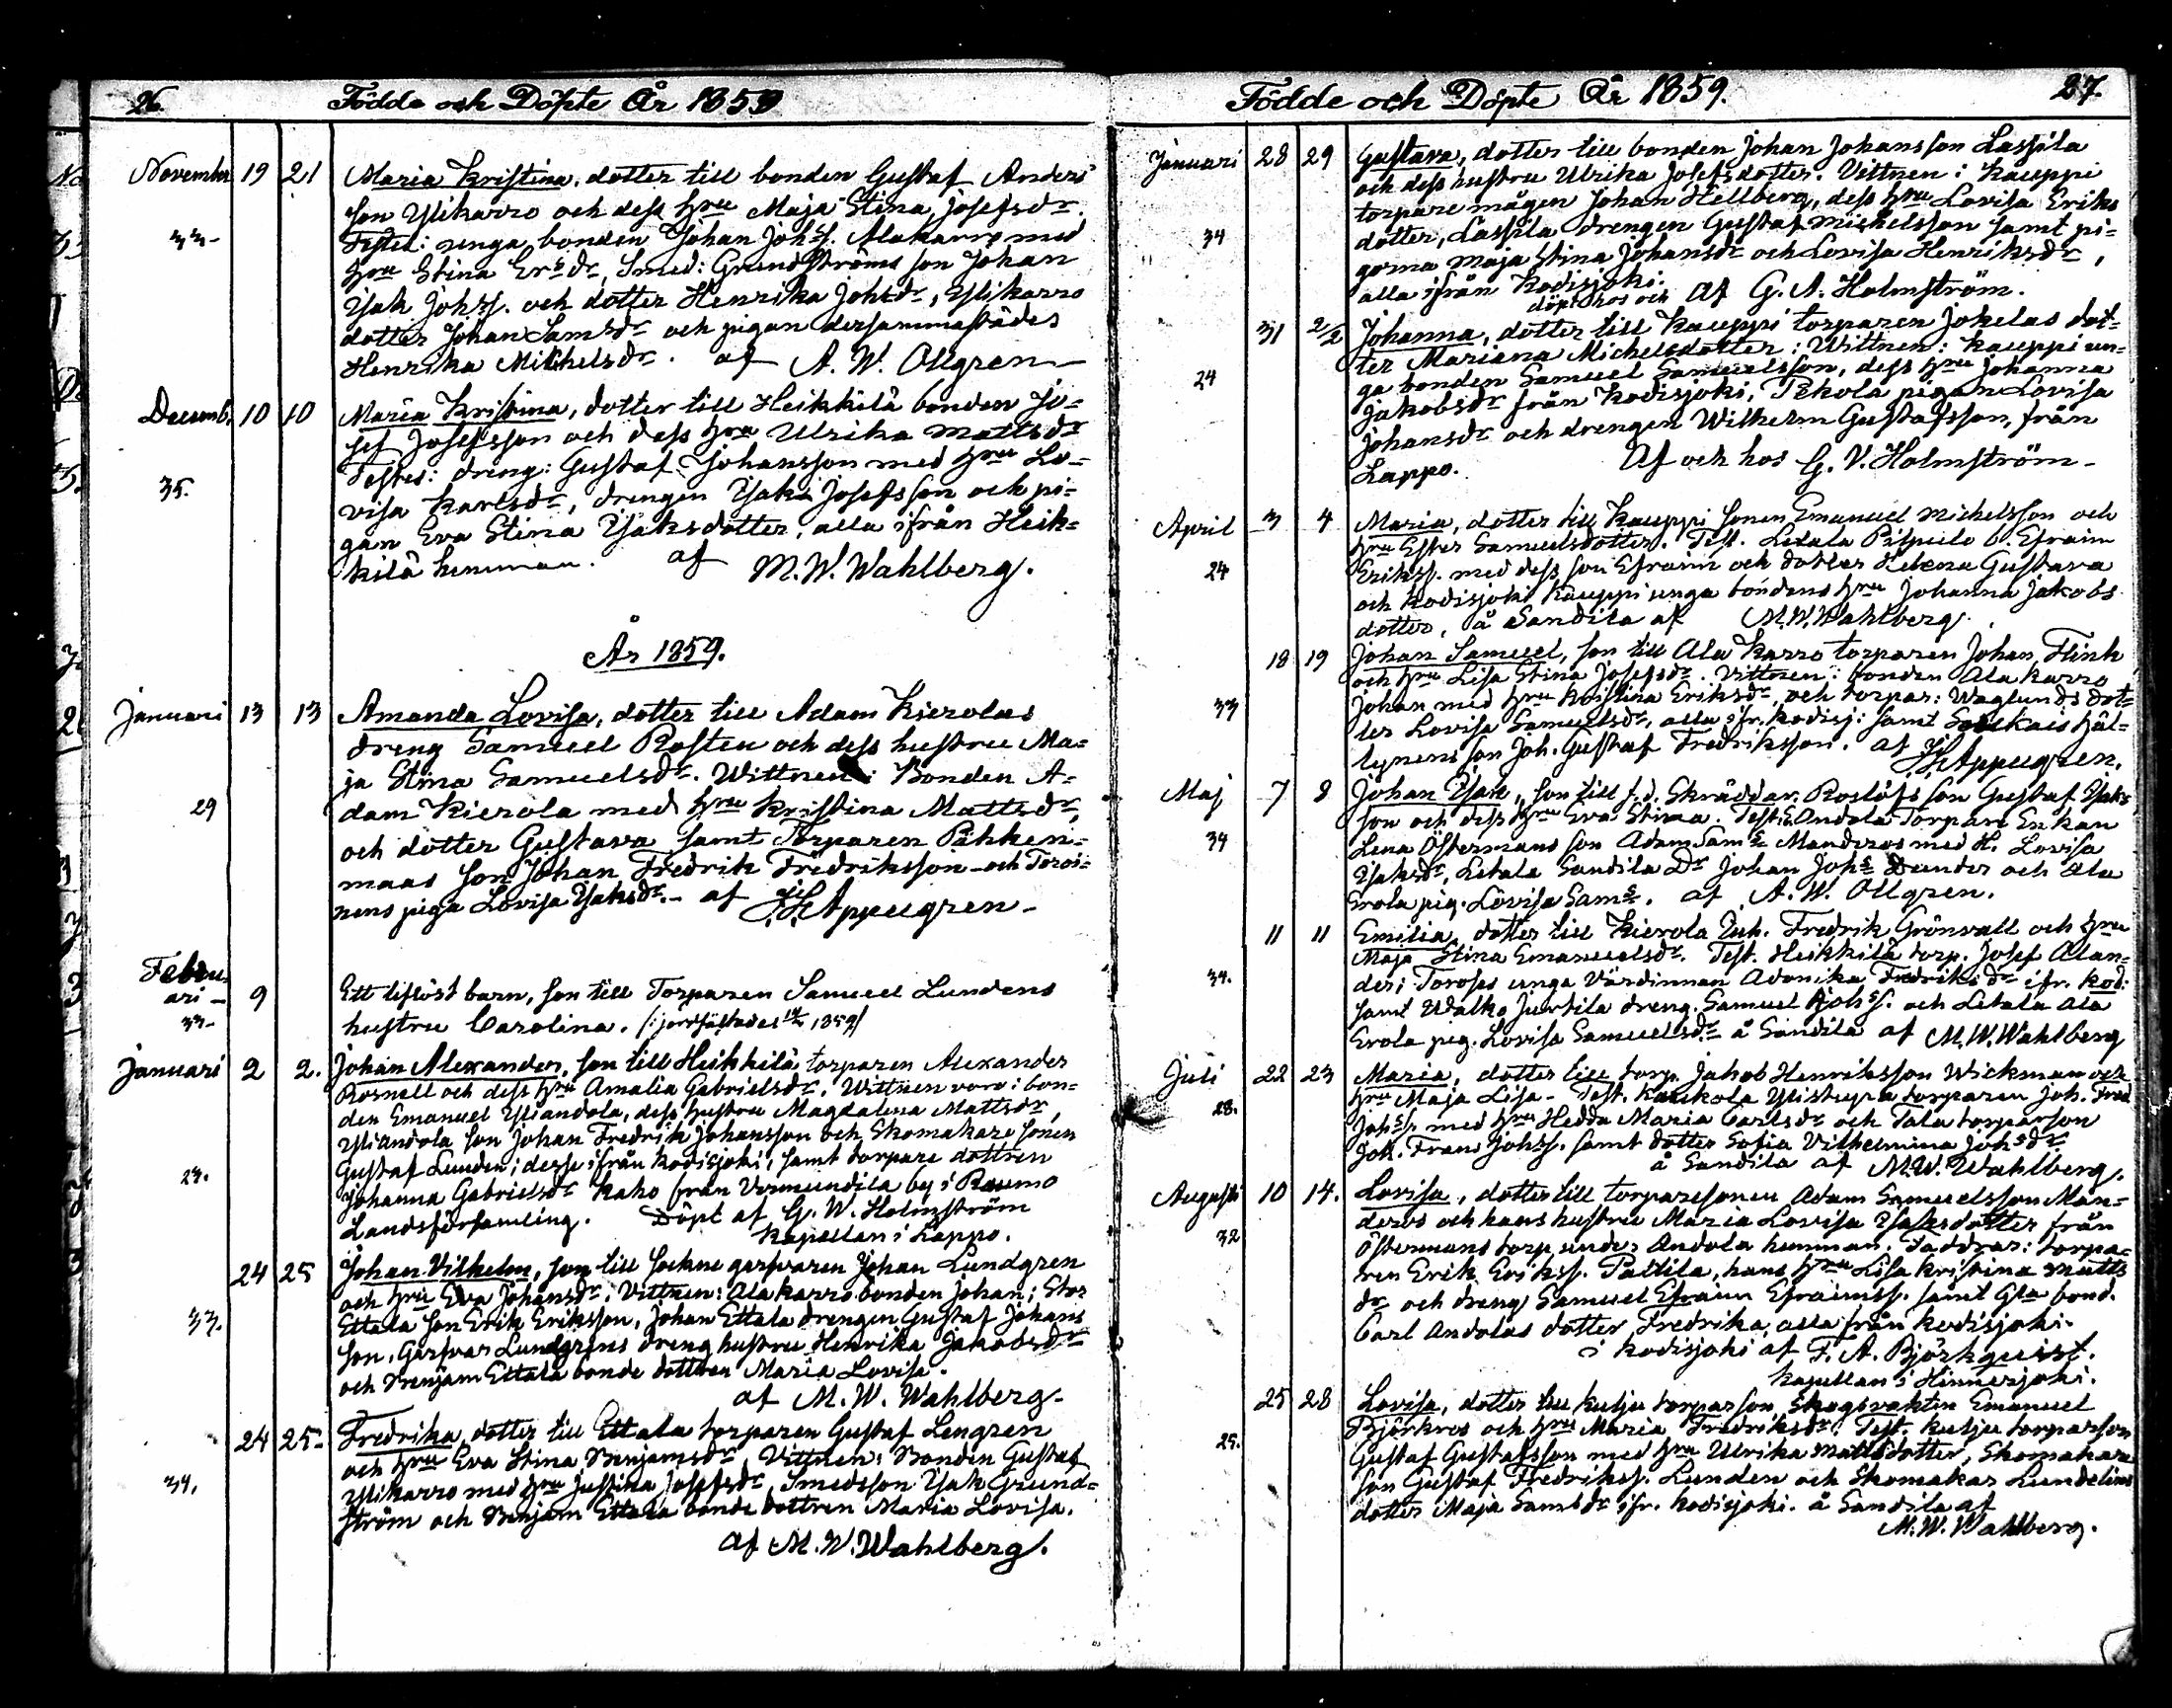 26.
Födde och Döpte År 1859
November 19 21 Maria Kristina, dotter till bonden Gustaf Anders
son Ylikarro och dess hru Maja Stina Josefsdr.
33- Testes: unga bonden Johan Johss. Alakarro med
hru Stina Ersdr, Smed: Grundströms son Johan
Isak Johss. och dotter Henrika Johsdr, Ylikarro
dotter Johan Samsdr och pigan dersammastädes
Henrika Michelsdr. af A. W. Ollgren
Decemb. 10 10 Maria Kristina, dotter till Heikkilä bonden Jo-
sef Josefsson och dess hru Ulrika Mattsdr
Testes: dreng: Gustaf Johansson med hru Lo-
35. visa Karlsdr, drengen Isak Josefsson och pi-
gan Eva Stina Isaksdotter, alla ifrån Heik-
kilä hemman. af M. W. Wahlberg.
År 1859.
Januari 13 13 Amanda Lovisa, dotter till Adam Kierolas
dreng Samuel Rosten och dess hustru Ma-
ja Stina Samuelsdr. Wittnen: Bonden A-
29 dam Kierola med hru Kristina Mattsdr,
och dotter Gustava samt Torparen Pihken-
maas son Johan Fredrik Fredriksson och Toroi-
nens piga Lovisa Isaksdr. - af Appelgren -
Febru-
ari - 9 Ett liflöst barn, son till Torparen Samuel Lundens
33- hustru Carolina. /: jordfästades 1859/
Januari 2 2. Johan Alexander, son till Heikkilä torparen Alexander
Rosnell och dess hru Amalia Gabrielsdr. Wittnen voro: bon-
den Emanuel Yliandola, dess hustru Magdalena Mattsdr,
Yliandola son Johan Fredrik Johansson och Skomakare sonen
23. Gustaf Lunden; desse ifrån Kodisjoki, samt torpare dottren
Johanna Gabrielsdr Kako från Vermundila by i Raumo
Landsförsamling. Döpt af G. W. Holmström
Kapellan i Lappo.
24 25 Johan Vilhelm, son till Sockne garfvaren Johan Lundgren
och hru Eva Johansdr; Vittnen: Alakarro bonden Johan; Stor
33. Ettala son Erik Eriksson, Johan Ettala drengen Gustaf Johans
son, Garfvar Lundgrens dreng hustru Henrika Jakobsdr
och Benjam Ettala bonde dottren Maria Lovisa.
af M. W. Wahlberg.
24 25- Fredrika, dotter till Ettala torparen Gustaf Lengren
och hru Eva Stina Benjamsdr, Vittnen: Bonden Gustaf
34. Ylikarro med hru Justina Josefsdr, Smedsson Isak Grund-
ström och Benjam Ettala bonde dottren Maria Lovisa.
af M. W. Wahlberg.
Födde och Döpte År 1859. 27.
Januari 28 29 Gustava, dotter till bonden Johan Johansson Lassila
och dess hustru Ulrika Josefsdotter. Vittnen: Kauppi
torpare mågen Johan Hellberg, dess hru Lovisa Eriks
34 dotter, Lassila drengen Gustaf Michelsson samt pi-
gorna Maja Stina Johansdr och Lovisa Henriksdr,
alla ifrån Kodisjoki.
döpt hos och af G. A. Holmström.
31 2/2 Johanna, dotter till Kauppi torparen Jokelas dot-
ter Mariana Michelsdotter: Wittnen: Kauppi un-
24 ga bonden Samuel Samuelsson, dess hru Johanna
Jakobsdr från Kodisjoki, Pekola pigan Lovisa
Johansdr och drengen Wilhelm Gustafsson, från
Lappo. Af och hos G. V. Holmström -
April 3 4 Maria, dotter till Kauppi sonen Emanuel Michelsson och
hru Ester Samuelsdotter. Test. Letala b. Efraim
24 Erikss. med dess son Efraim och dotter Helena Gustava
och Kodisjoki Kauppi unga bondens hru Johanna Jakobs
dotter, å Sandila af M. W. Wahlberg.
18 19 Johan Samuel, son till Ala Karro torparen Johan Flink
och hru Lisa Stina Josefsdr. Vittnen: bonden Alakarro
33 Johan med hru Kristina Eriksdr, och torpar: Waglunds dot-
ter Lovisa Samuelsdr, alla ifr. Kodisj: samt
son Joh. Gustaf Fredriksson. af Appelgren.
Maj 7 8 Johan Isak, son till f. d. Skräddar. Roslöfs son Gustaf Isaks
son och dess hru Eva Stina. Test: Andola Torpare Enkan
34 Lena Östermans son Adam Sams. Manderos med H. Lovisa
Isaksdr, Letala Sandila Dr Johan Johs och Ala
Erola pig. Lovisa Sams. af A. W. Ollgren.
11 11 Emilia, dotter till Kierola Inh. Fredrik Grönvall och hru
Maja Stina Emanuelsdr. Test. Heikkilä torp. Josef Alan-
34. der; Torois unga Värdinnan Adonika Fredriksdr ifr. Kod:
samt Walko Juvtila dreng Samuel Johss. och Letala Ala
Erola pig. Lovisa Samuelsdr. å Sandila af M. W. Wahlberg
Juli 22 23 Maria, dotter till torp. Jakob Henriksson Wickman och
28. hru Maja Lisa - Test. Kaukola Ylistupa torparen Joh. Fred
Johss. med hru Hedda Maria Carlsdr och Tala torparson
Joh. Frans Johss. samt dotter Sofia Vilhelmina Johsdr.
å Sandila af M. W. Wahlberg.
Augusti 10 14. Lovisa, dotter till torparesonen Adam Samuelsson Man-
deros och hans hustru Maria Lovisa Isaksdotter från
32 Östermans torp under Andola hemman. Faddrar: torpa-
ren Erik Erikss. Paltila, hans hru Lisa Kristina Matts
dr och dreng Samuel Efraim Efraimss. samt Gla bond.
Carl Andolas dotter Fredrika, alla från Kodisjoki.
i Kodisjoki af F. A. Björkquist.
Kapellan i Hinnerjoki.
25 28 Lovisa, dotter till Kulju torparson Skogsvakten Emanuel
Björkros och hru Maria Fredriksdr. Test. Kulju torparson
25. Gustaf Gustafsson med hru Ulrika Mattsdotter, Skomakare
son Gustaf Fredrikss. Lunden och Skomakar Lundelins
dotter Maja Samsdr ifr. Kodisjoki. å Sandila af
M. W. Wahlberg.